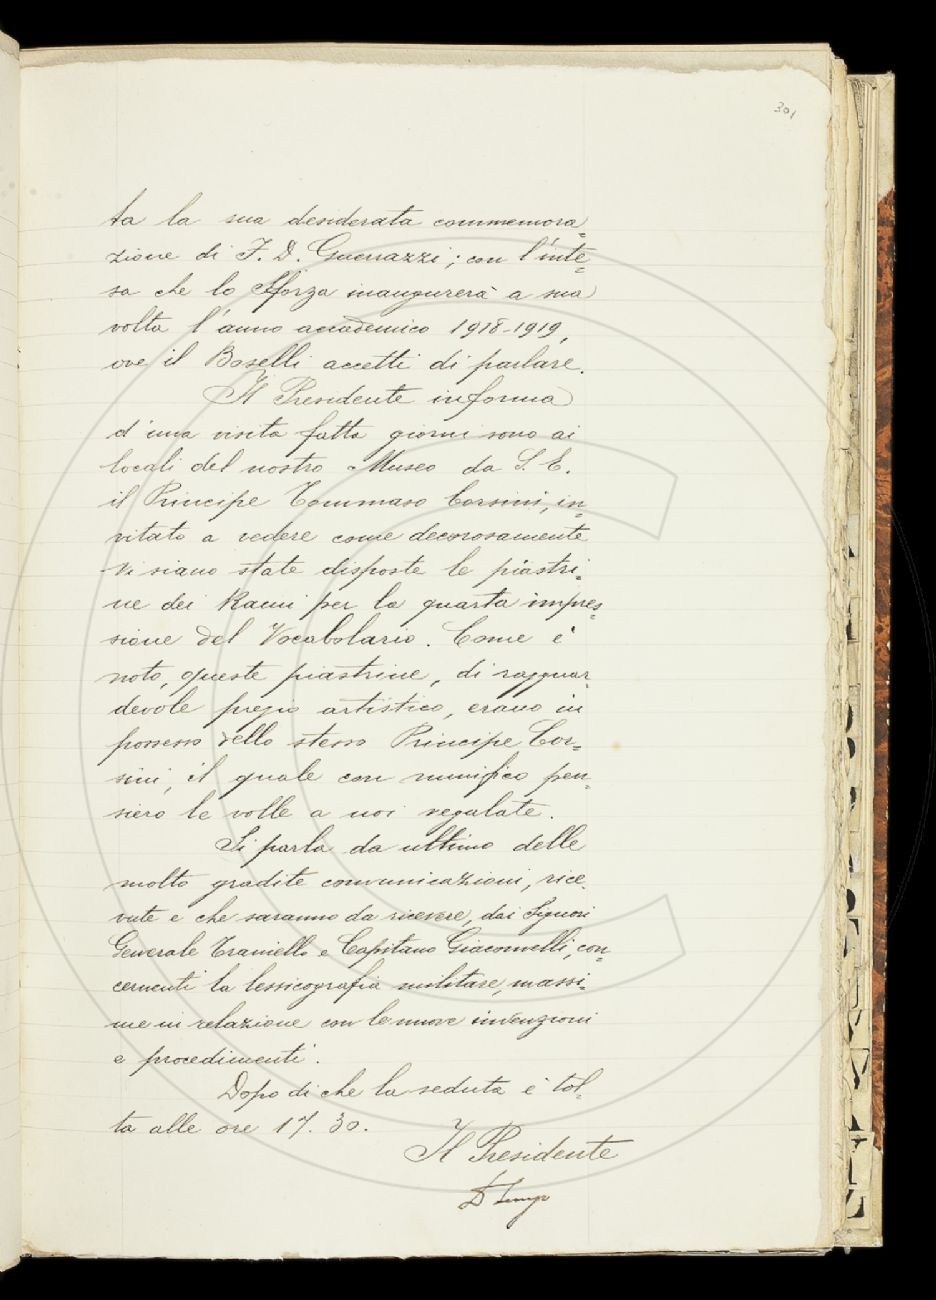 301
ta la sua desiderata commemora=
zione di F. D. Guerrazzi; con l'inte=
sa che lo Sforza inaugurerà a sua
volta l'anno accademico 1918-1919,
ove il Boselli accetti di parlare.
Il Presidente informa
d'una visita fatta giorni sono ai
locali del nostro Museo da S. E.
il Principe Tommaso Corsini, in=
vitato a vedere come decorosamente
vi siano state disposte le piastri=
ne dei Rami per la quarta impres=
sione del Vocabolario. Come è
noto, queste piastrine, di ragguar=
devole pregio artistico, erano in
possesso dello stesso Principe Cor=
sini, il quale con munifico pen=
siero le volle a noi regalate.
Si parla da ultimo delle
molto gradite comunicazioni, rice=
vute e che saranno da ricevere, dai Signori
Generale Traniello e Capitano Giacomelli, con=
cernenti la lessicografia militare, massi=
me in relazione con le nuove invenzioni
e procedimenti.
Dopo di che la seduta è tol=
ta alle ore 17.30.
Il Presidente